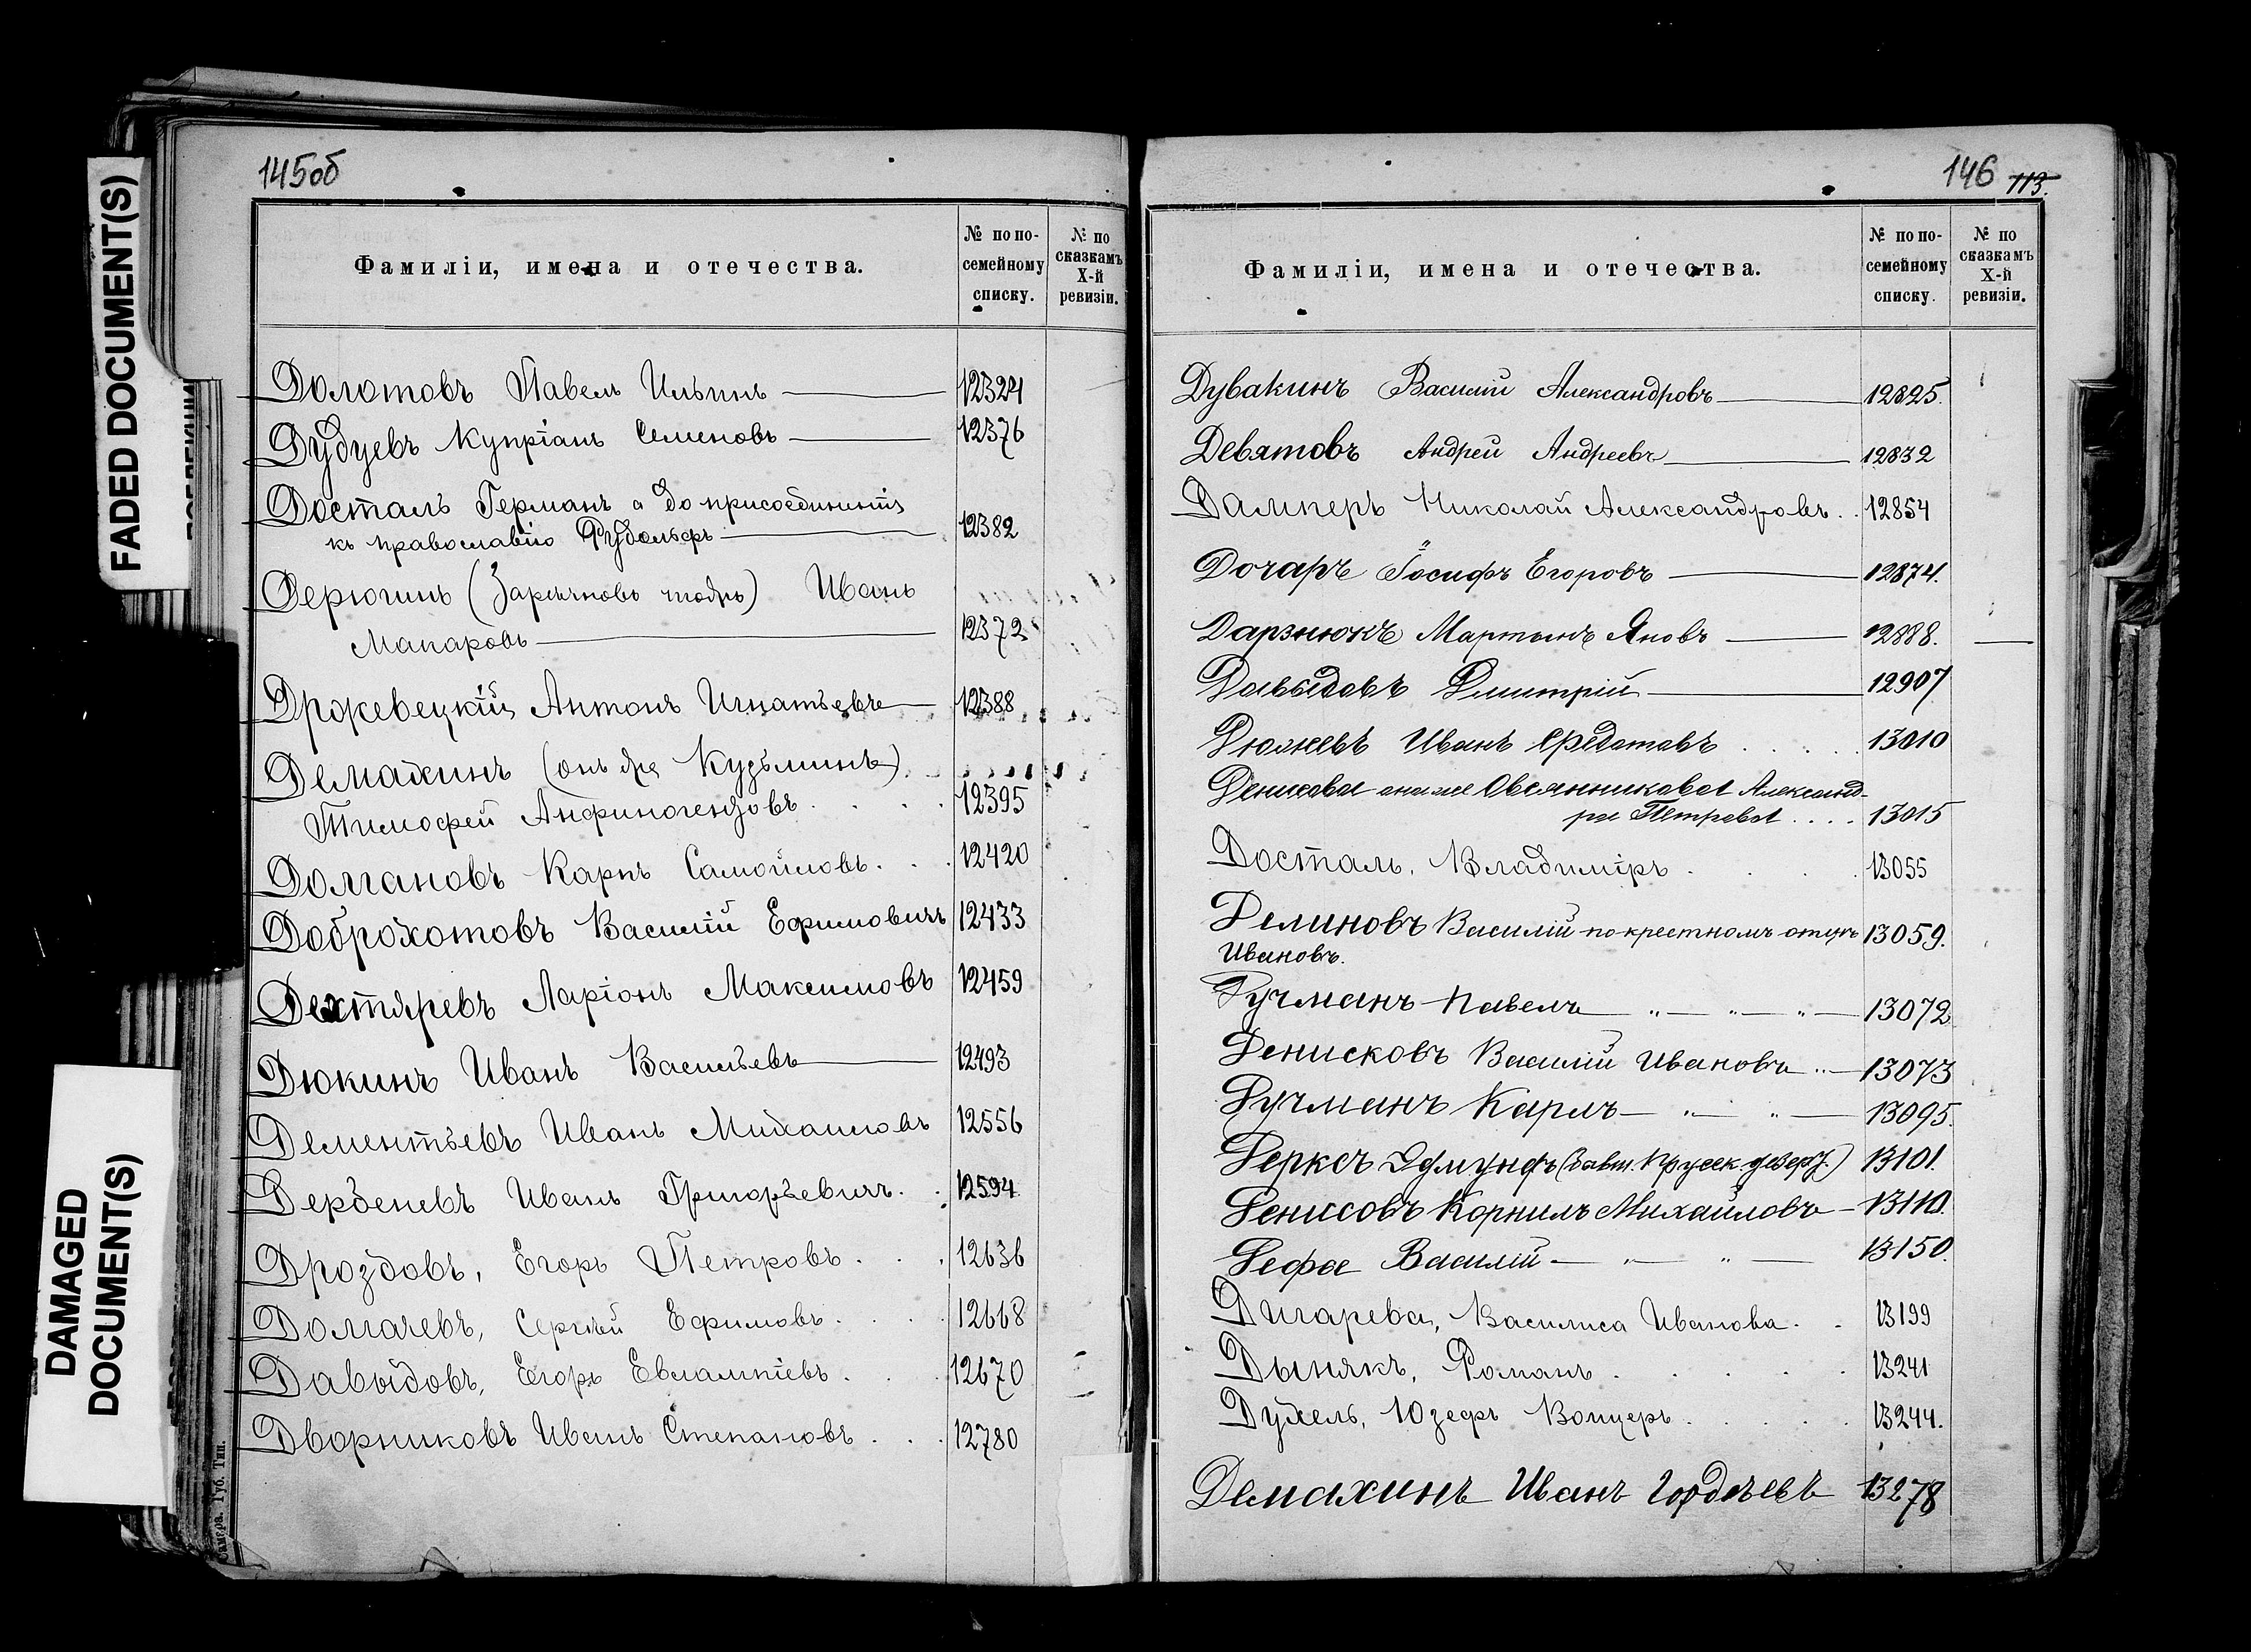 FADED DOCUMENT(S)
DAMAGED
DOCUMENT(S)
145об
Фамиліи, имена и отечества.
№ по по-
семейному
списку.
№ по
сказкамъ
X-й
ревизіи.
Долотовъ Павелъ Ильинъ 12324
Дудуевъ Купріанъ Семеновъ 12376
Досталъ Германъ а до присоединенія
къ православію Рудольфъ 12382
Дерюгинъ (Зарѣчновъ тожъ) Иванъ
Макаровъ 12372
Држевецкій Антонъ Игнатьевъ 12388
Демахинъ (онъ же Кузьминъ)
Тимофей Анфиногеновъ 12395
Долгановъ Карпъ Самойловъ 12420
Доброхотовъ Василій Ефимовичъ 12433
Дехтяревъ Ларіонъ Максимовъ 12459
Дюкинъ Иванъ Васильевъ 12493
Дементьевъ Иванъ Михаиловъ 12556
Дербеневъ Иванъ Григорьевичъ 12594
Дроздовъ, Егоръ Петровъ 12636
Долгачевъ, Сергѣй Ефимовъ 12668
Давыдовъ, Егоръ Евлампіевъ 12670
Дворниковъ Иванъ Степановъ 12780
Губ. Тип.
146 113.
Фамиліи, имена и отечества.
№ по по-
семейному
списку.
№ по
сказкамъ
X-й
ревизіи.
Дувакинъ Василій Александровъ 12825.
Девятовъ Андрей Андреевъ 12832
Дамперъ Николай Александровъ 12854
Дочаръ Іосифъ Егоровъ 12874.
Дарзнюкъ Мартынъ Яновъ 12888.
Давыдовъ Дмитрій 12907
Дюжевъ Иванъ Федотовъ 13010
Денисова она же Овсянникова Александ-
ра Петрова 13015
Досталь, Владиміръ 13055
Делиновъ Василій по крестномъ отцѣ 13059.
Ивановъ.
Дучманъ Павелъ 13072
Денисковъ Василій Ивановъ 13073
Дучманъ Карлъ 13095.
Деркеъ Эдмундъ (бывш. Прусск. дезерт.) 13101.
Денисовъ Корнилъ Михайловъ 13110.
Дефа Василій 13150.
Дигарева, Василиса Иванова 13199
Дынякъ, Романъ 13241
Духель, Юзефъ Вопцеръ 13244.
Демахинъ Иванъ Гордѣевъ 13278